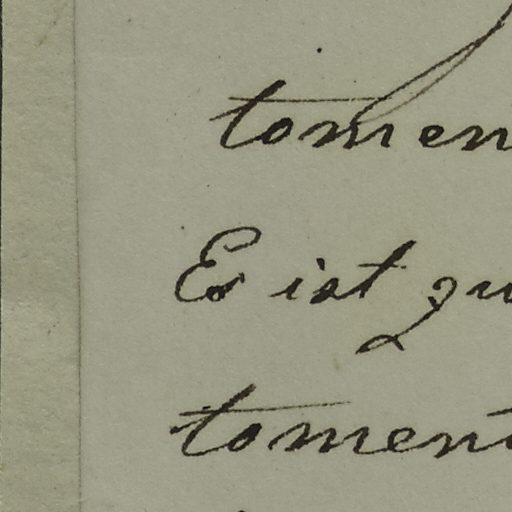 tomen
Es ist zu
toment